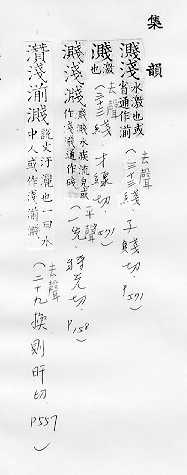 集韻
濺淺 水激也或省通作湔
(去聲 三十三綫,子賤切,P571)
濺 激也
(去聲 三十三綫,才線切,571)
濺淺 濺濺水疾流皃或作淺淺通作㳿
(平聲 一先,將先切,P158)
灒淺湔濺 說文汙灑也一曰水中人或作淺湔濺
(去聲 二十九換則旰切,P557)